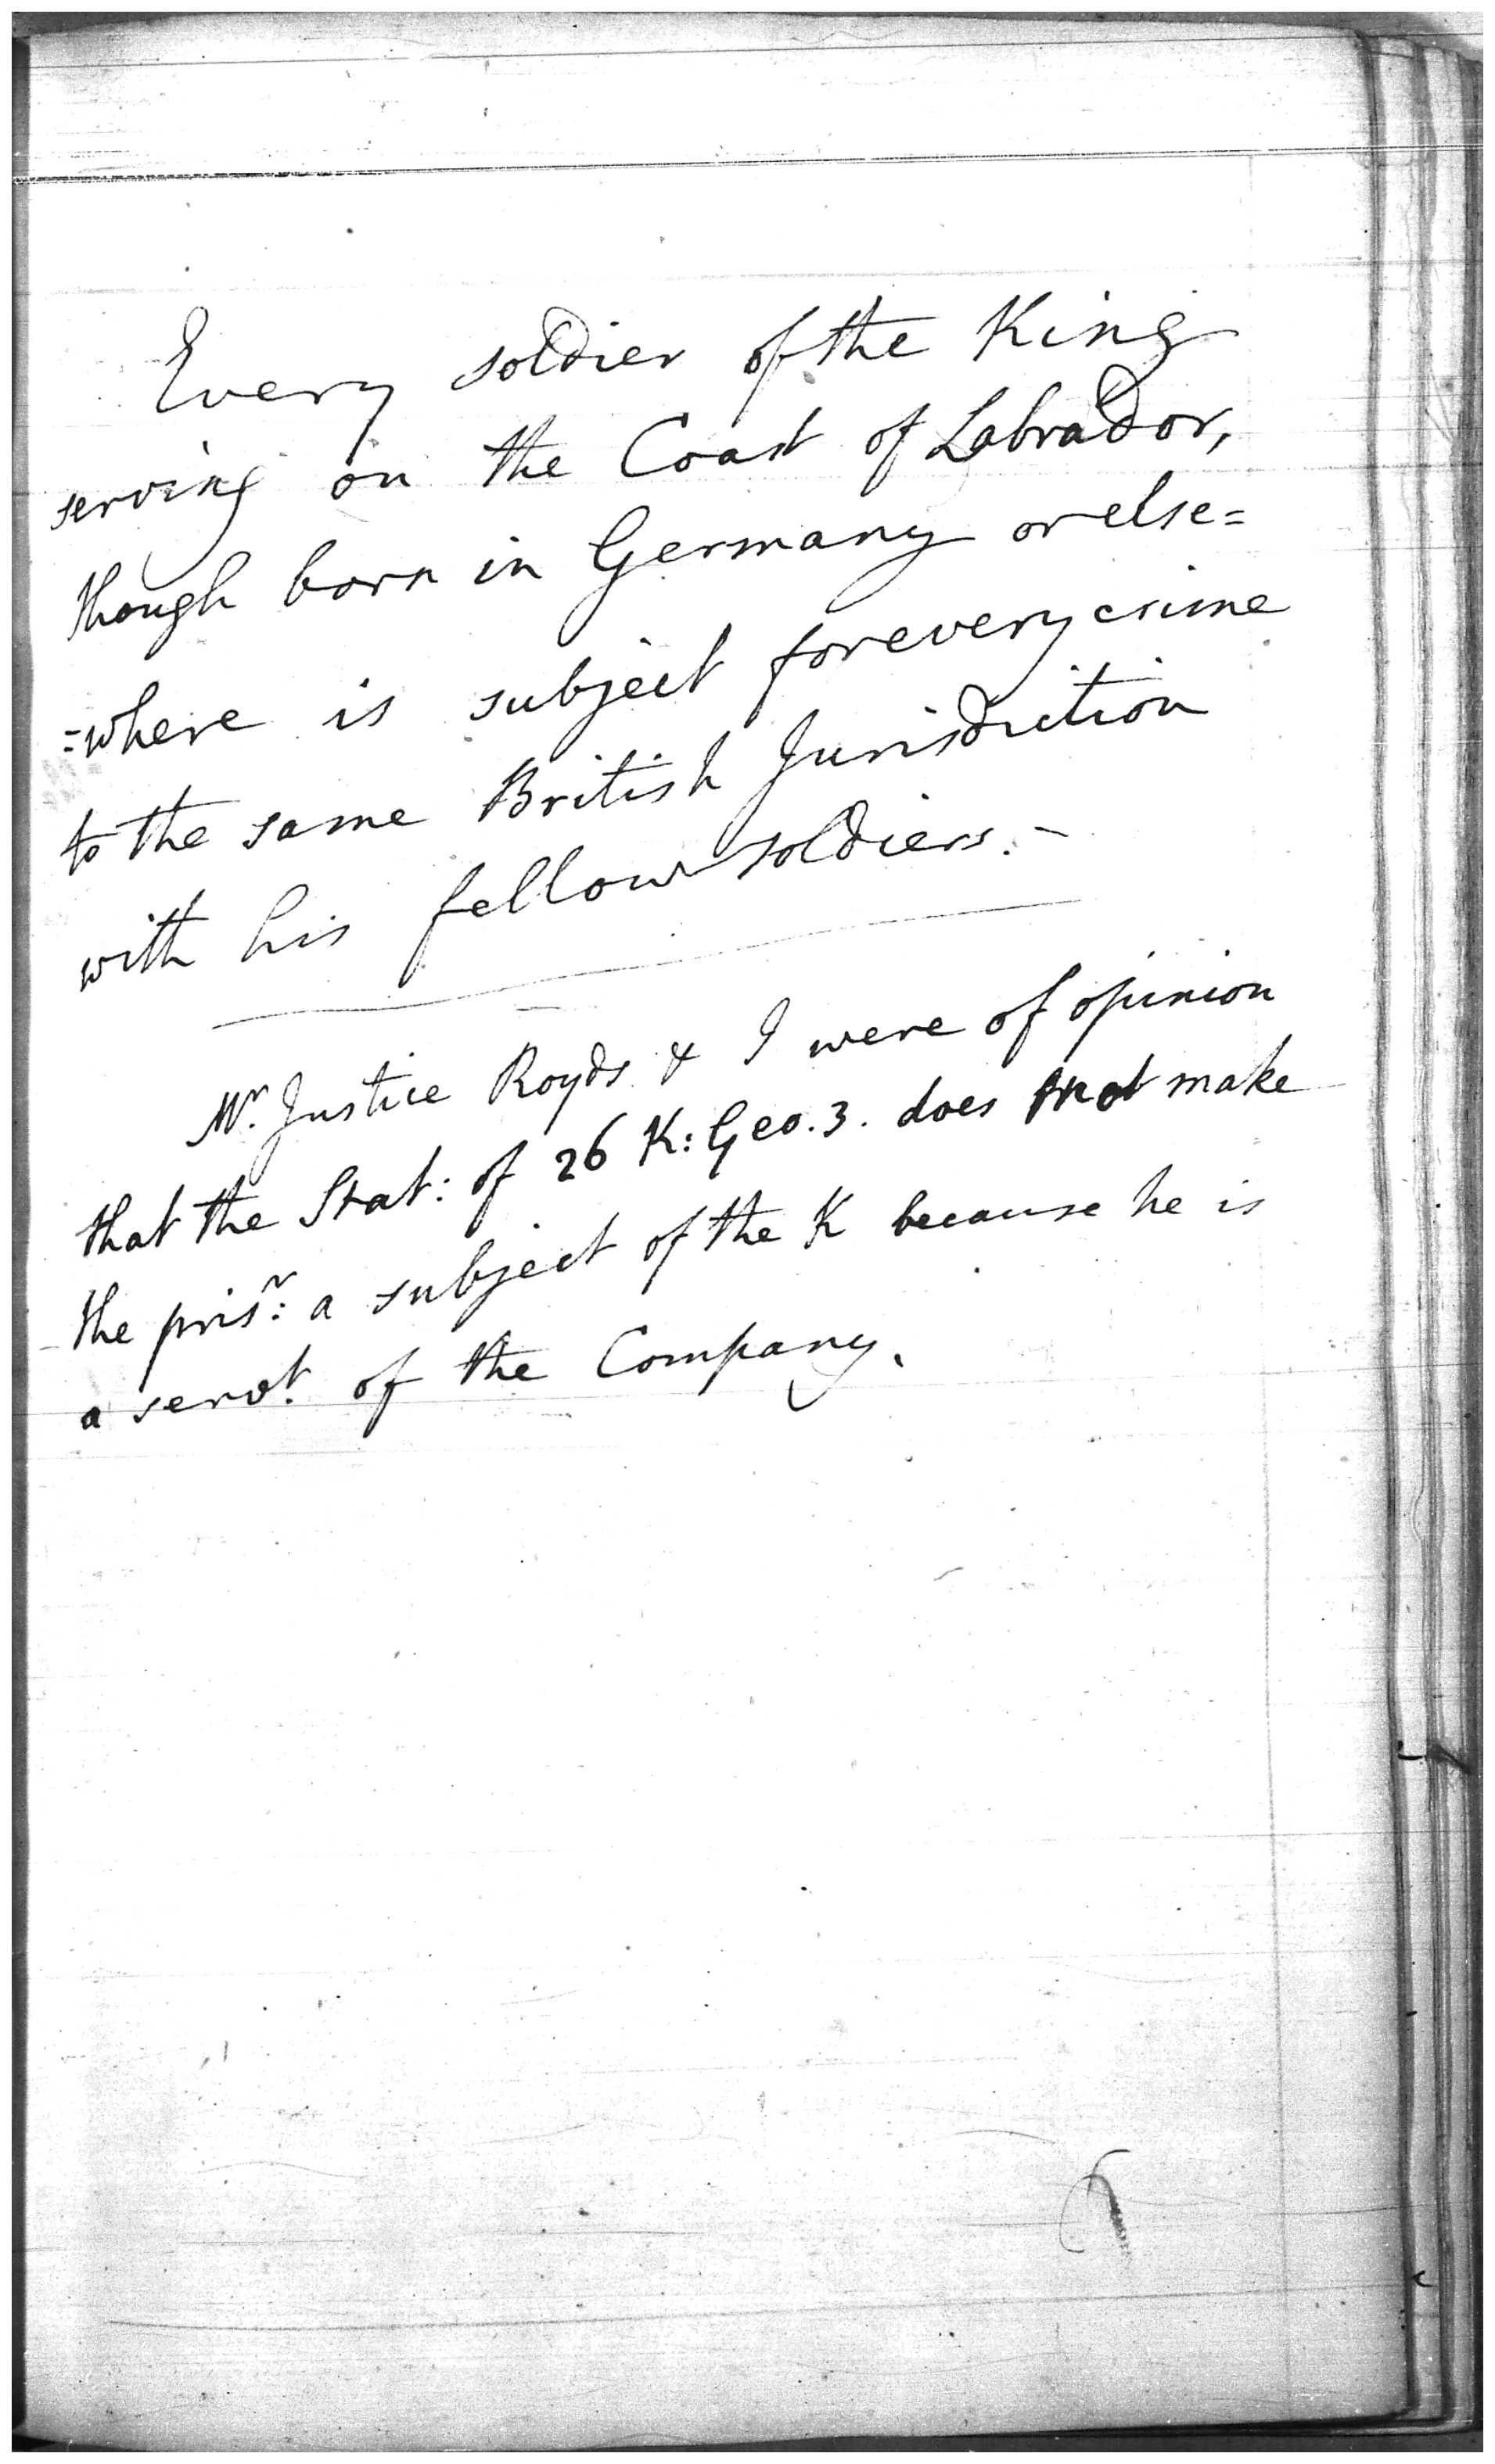 Every soldier of the King
serving on the Coast of Labrador,
though born in Germany or else=
=where is subject for every crime
to the same British Jurisdiction
with his fellow soldiers. -
Mr. Justice Royds & I were of opinion
that the Stat: of 26 K: Geo. 3. does not make
the prisr: a subject of the K because he is
a servt. of the Company.